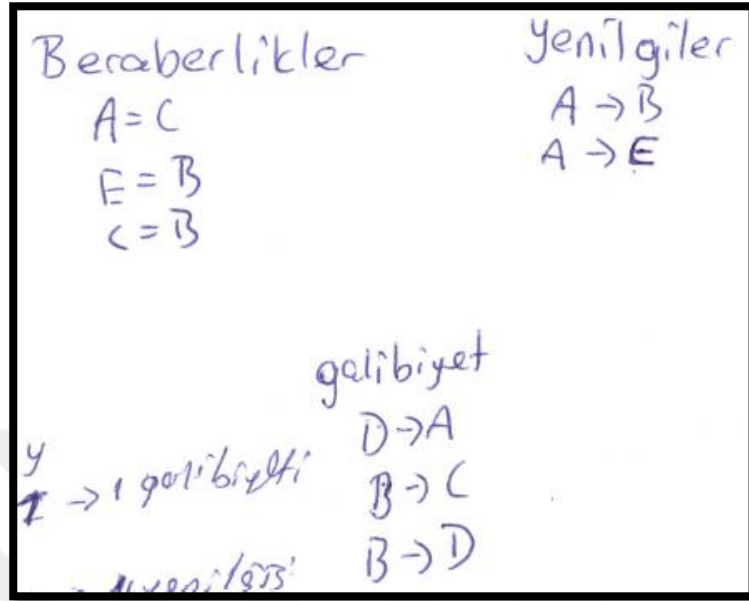 Beraberlikler
A = C
E = B
C = B
Yenilgiler
A → B
A → E
galibiyet
D → A
B → C
B → D
y
1 → 1 galibiyeti